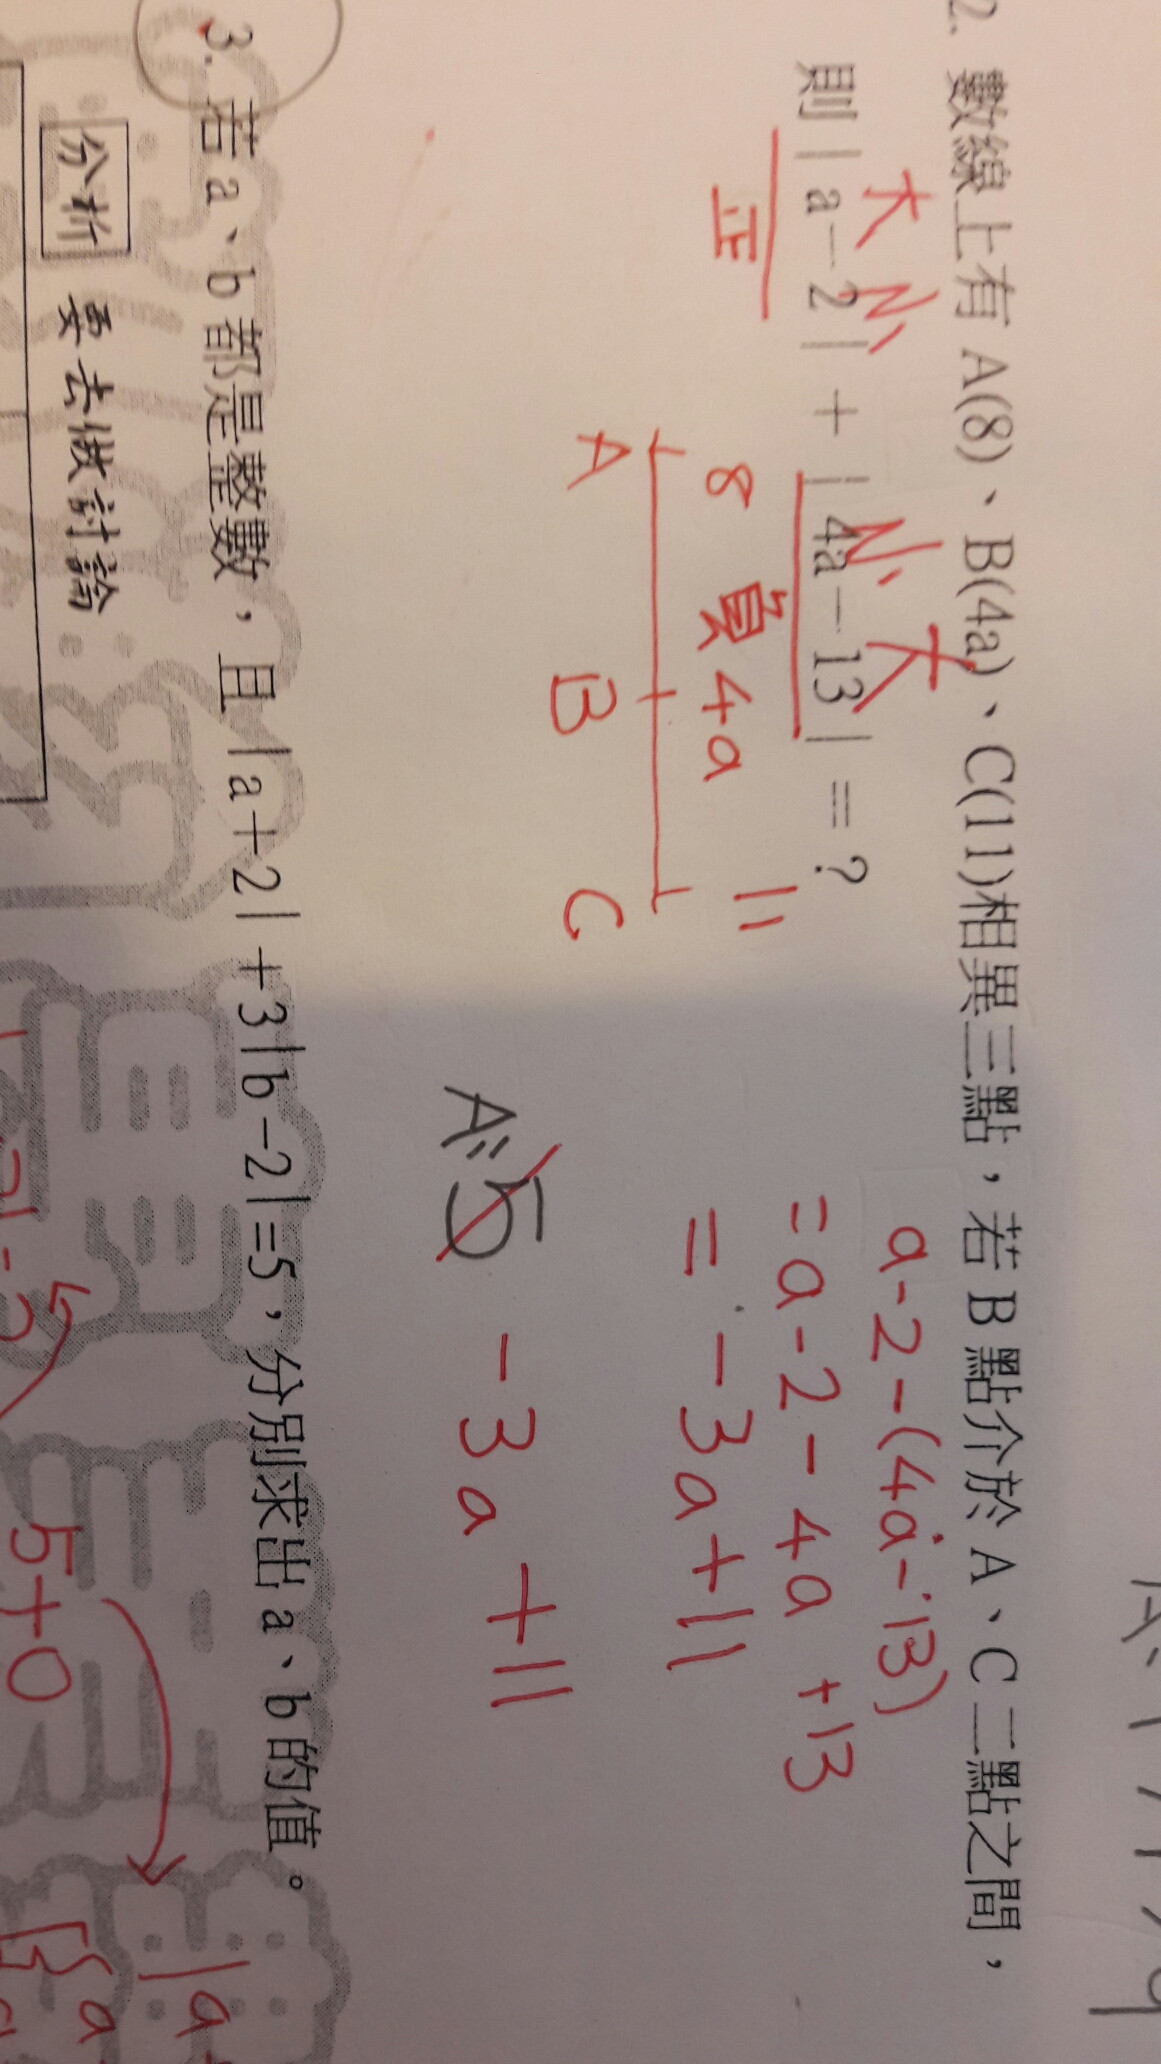 2. 數線上有 A(8)、B(4a)、C(11)相異三點，若 B 點介於 A、C 二點之間，
則 | a－2 | ＋ | 4a－13 | ＝ ?
大 小 小 大
正 負
8 4a 11
A B C
a-2-(4a-13)
=a-2-4a+13
=-3a+11
A: 5 -3a+11
3. 若 a、b 都是整數，且 |a+2|+3|b-2|=5，分別求出 a、b 的值。
分析 要去做討論
5+0